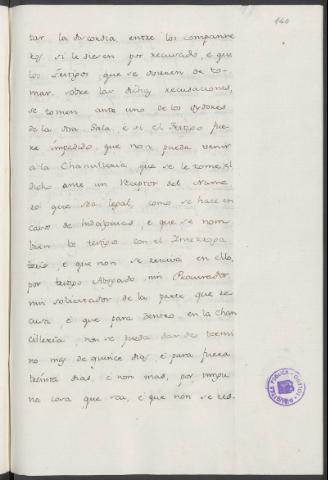 160
tar la discordia entre los compañe
ros si le dieren por recusado, é que
los Testigos, que se ovieren de to-
mar, sobre las dichas recusaciones,
se tomen ante uno de los Oydores
de la otra Sala, é si el Testigo fue-
re impedido, que non pueda venir
á la Chancilleria, que se le tome el
dicho ante un Receptor del Nume
ro que sea legal, como se hace en
casos de hidalguias, é que se nom
bien los testigos con el Interroga
torio, é que non se reciva en ello,
por testigo Abogado, nin Procurador,
nin solicitador de la parte que re
cusa, é que para dentro, en la Chan
cilleria, non se pueda dar de termi
no mas de quince dias, é para fuera
treinta dias, é non mas, por ningu
na cosa que sea, é que non se res-
BIBLIOTECA PUBLICA